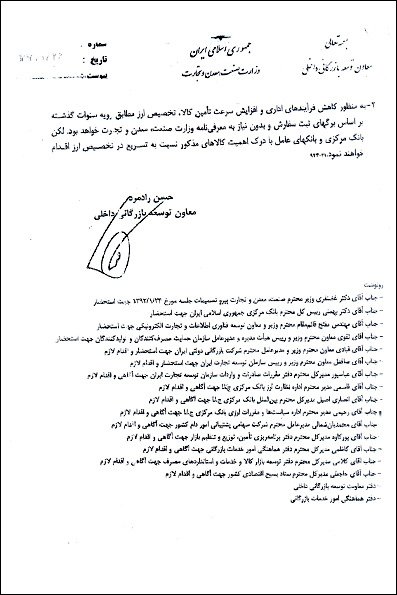 بسمه تعالی
معاون توسعه بازرگانی داخلی
جمهوری اسلامی ایران
وزارت صنعت، معدن و تجارت
شماره
تاریخ
پیوست
۲- به منظور کاهش فرآیندهای اداری و افزایش سرعت تأمین کالا، تخصیص ارز مطابق رویه سنوات گذشته
بر اساس برگهای ثبت سفارش و بدون نیاز به معرفی‌نامه وزارت صنعت، معدن و تجارت خواهد بود. لکن
بانک مرکزی و بانکهای عامل با درک اهمیت کالاهای مذکور نسبت به تسریع در تخصیص ارز اقدام
خواهند نمود.
حسن رادمرد
معاون توسعه بازرگانی داخلی
رونوشت
- جناب آقای دکتر غضنفری وزیر محترم صنعت، معدن و تجارت پیرو تصمیمات جلسه مورخ ۱۳۹۲/۱/۲۳ جهت استحضار
- جناب آقای دکتر بهمنی رییس کل محترم بانک مرکزی جمهوری اسلامی ایران جهت استحضار
- جناب آقای مهندس مفتح قائم‌مقام محترم وزیر و معاون توسعه فناوری اطلاعات و تجارت الکترونیکی جهت استحضار
- جناب آقای تقوی معاون محترم وزیر و رییس هیأت مدیره و مدیرعامل سازمان حمایت مصرف‌کنندگان و تولیدکنندگان جهت استحضار
- جناب آقای قبادی معاون محترم وزیر و مدیرعامل محترم شرکت بازرگانی دولتی ایران جهت استحضار و اقدام لازم
- جناب آقای صافدل معاون محترم وزیر و رییس سازمان توسعه تجارت ایران جهت استحضار و اقدام لازم
- جناب آقای عباسپور مدیرکل محترم دفتر مقررات صادرات و واردات سازمان توسعه تجارت ایران جهت آگاهی و اقدام لازم
- جناب آقای قاسمی مدیر محترم اداره نظارت ارز بانک مرکزی ج.ا.ا جهت آگاهی و اقدام لازم
- جناب آقای انصاری اصیل مدیرکل محترم بین‌الملل بانک مرکزی ج.ا.ا جهت آگاهی و اقدام لازم
- جناب آقای رحیمی مدیر محترم اداره سیاست‌ها و مقررات ارزی بانک مرکزی ج.ا.ا جهت آگاهی و اقدام لازم
- جناب آقای محمدیان‌شمالی مدیرعامل محترم شرکت سهامی پشتیبانی امور دام کشور جهت آگاهی و اقدام لازم
- جناب آقای پورکاوه مدیرکل محترم دفتر برنامه‌ریزی تأمین، توزیع و تنظیم بازار جهت آگاهی و اقدام لازم
- جناب آقای کاظمی مدیرکل محترم دفتر هماهنگی امور خدمات بازرگانی جهت آگاهی و اقدام لازم
- جناب آقای کلامی مدیرکل محترم دفتر توسعه بازار کالا و خدمات و استانداردهای مصرف جهت آگاهی و اقدام لازم
- جناب آقای مدیرکل محترم ستاد بسیج اقتصادی کشور جهت آگاهی و اقدام لازم
- دفتر معاونت توسعه بازرگانی داخلی
- دفتر هماهنگی امور خدمات بازرگانی